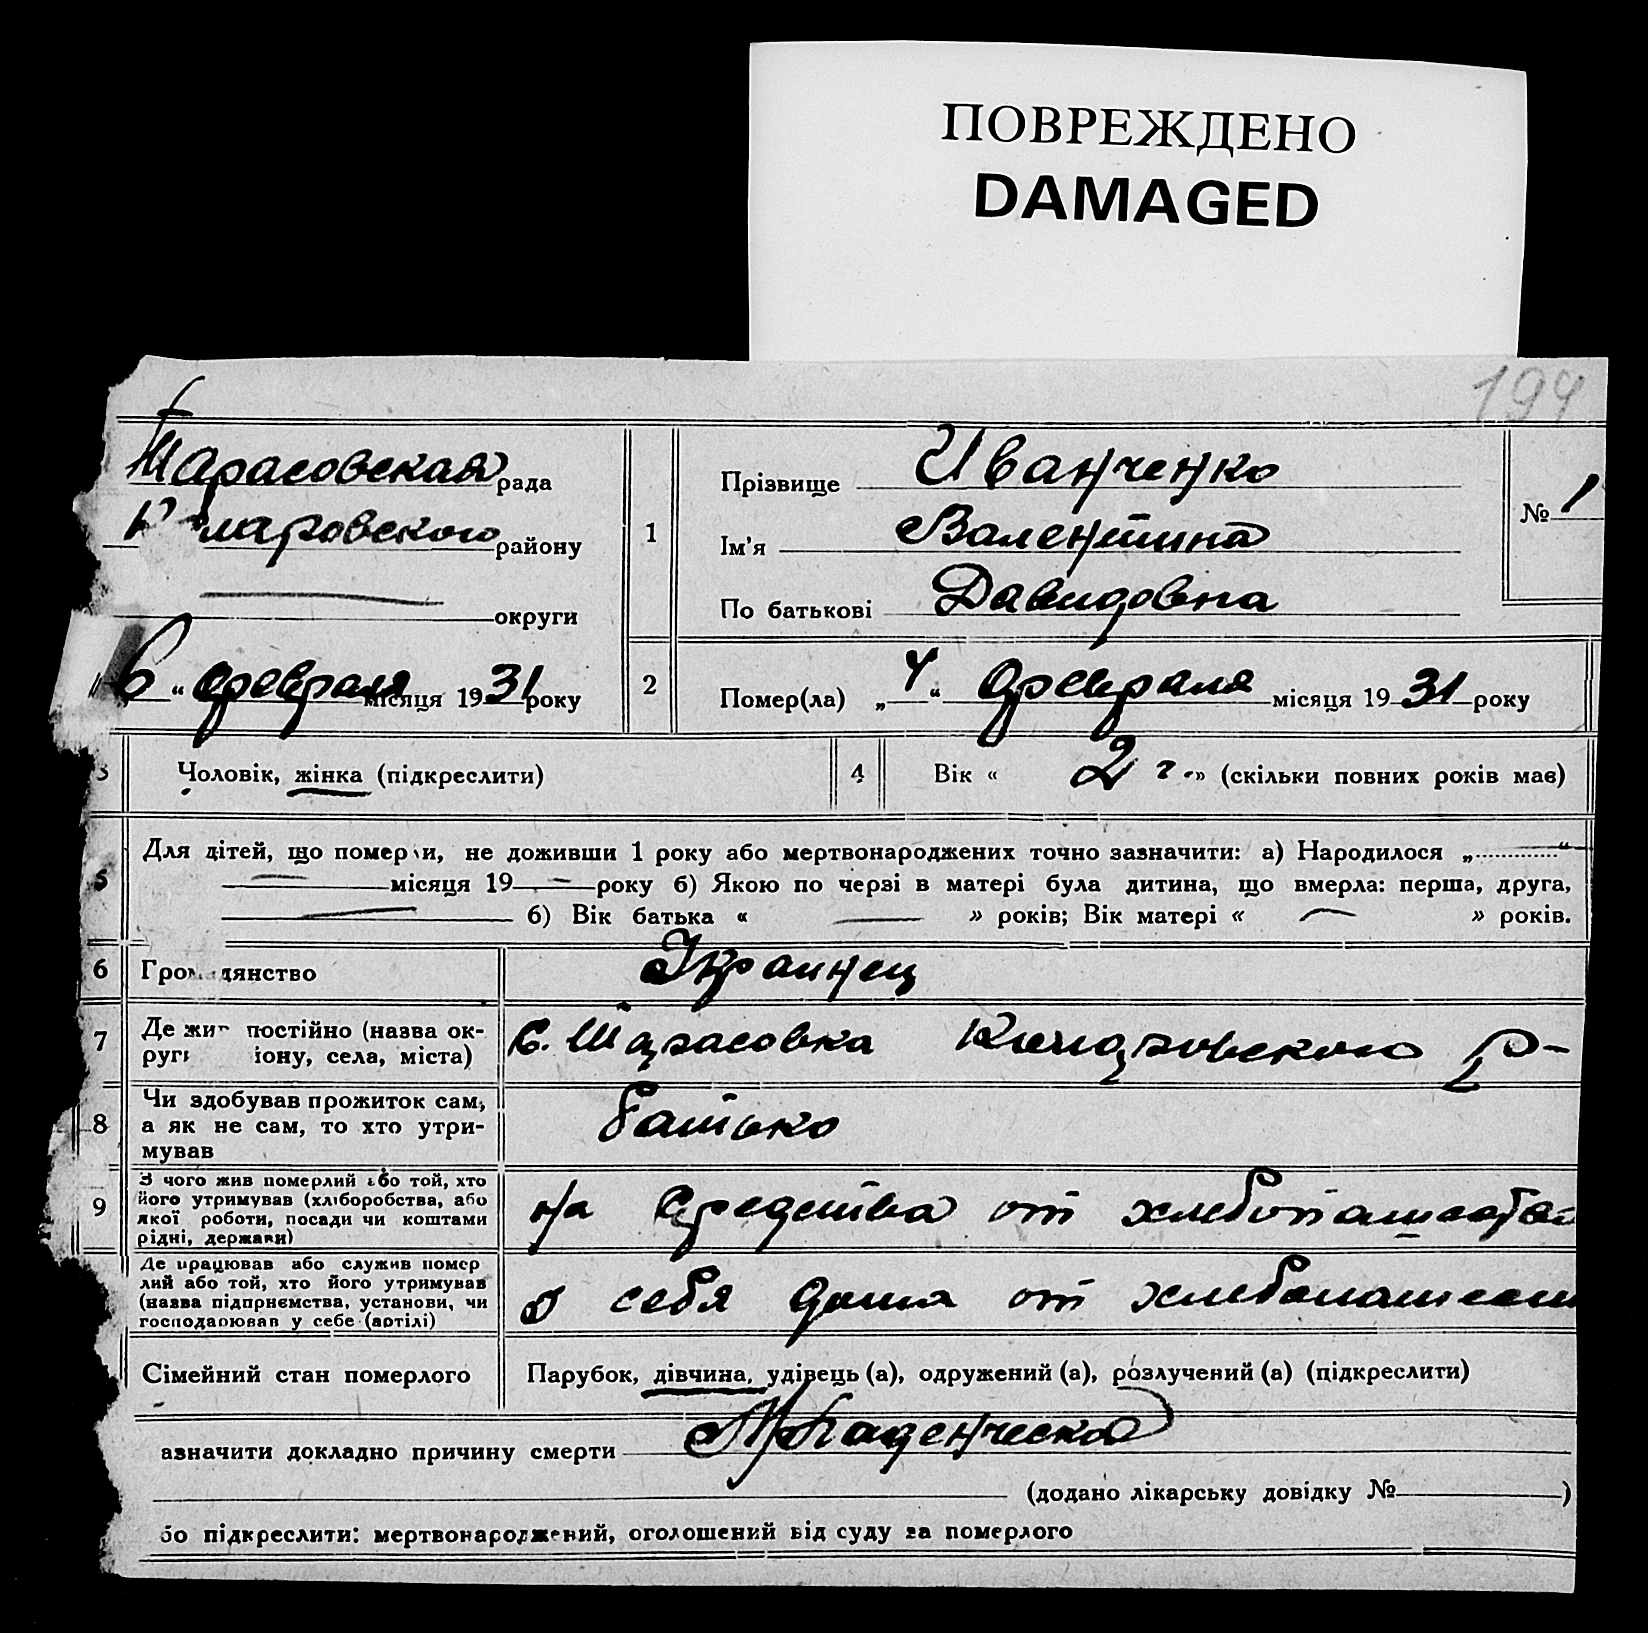 ПОВРЕЖДЕНО
DAMAGED
194
Тарасовская рада
района
округи
6 “ февраля місяця 1931 року
1
Прізвище Иванченко
Ім’я Валентина
По батькові Давидовна
№ 1
2
Помер(ла) „4“ февраля місяця 1931 року
3 Чоловік, жінка (підкреслити)
4 Вік « 2 г. » (скільки повних років має)
5 Для дітей, що помер и, не доживши 1 року або мертвонароджених точно зазначити: а) Народилося „ “
місяця 19 року б) Якою по черзі в матері була дитина, що вмерла: перша, друга,
б) Вік батька « » років; Вік матері « » років.
6 Гром дянство Украинец
7 Де жи постійно (назва ок-
руг іону, села, міста)
с. Тарасовка р-
8 Чи здобував прожиток сам,
а як не сам, то хто утри-
мував
батько
9 З чого жив померлий або той, хто
його утримував (хліборобства, або
якої роботи, посади чи коштами
рідні, держави)
на средства от хлебопашества
Де працював або служив помер
лий або той, хто його утримував
(назва підприємства, установи, чи
господарював у себе (артілі)
у себя дома от
Сімейний стан померлого
Парубок, дівчина, удівець (а), одружений (а), розлучений (а) (підкреслити)
азначити докладно причину смерти Младенческая
(додано лікарську довідку № )
бо підкреслити: мертвонароджений, оголошений від суду за померлого